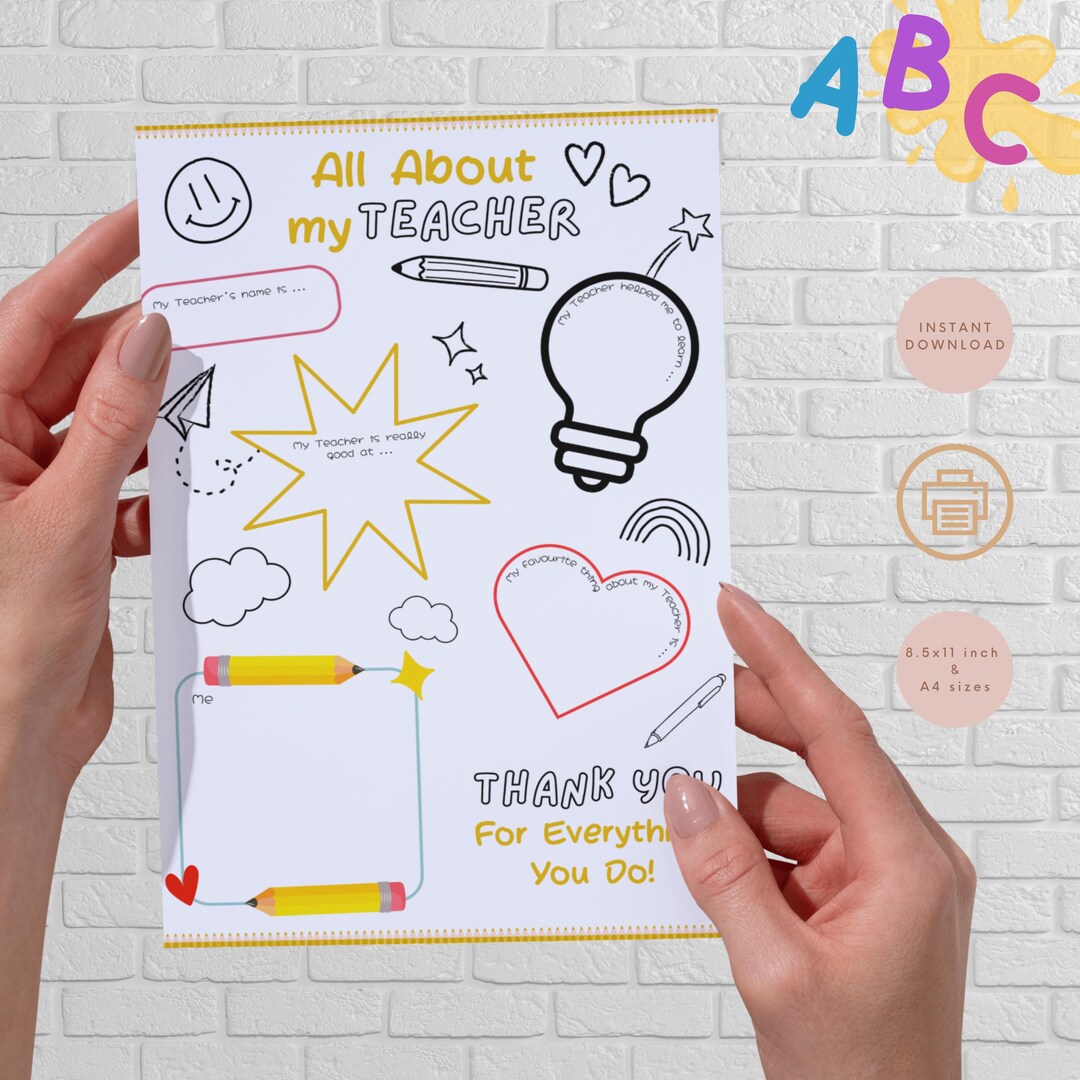 ABC
All About
my TEACHER
My Teacher's name is ...
My Teacher helped me to learn ...
My Teacher is really
good at ...
My favourite thing about my Teacher is ...
Me
THANK YOU
For Everythi
You Do!
INSTANT
DOWNLOAD
8.5x11 inch
&
A4 sizes